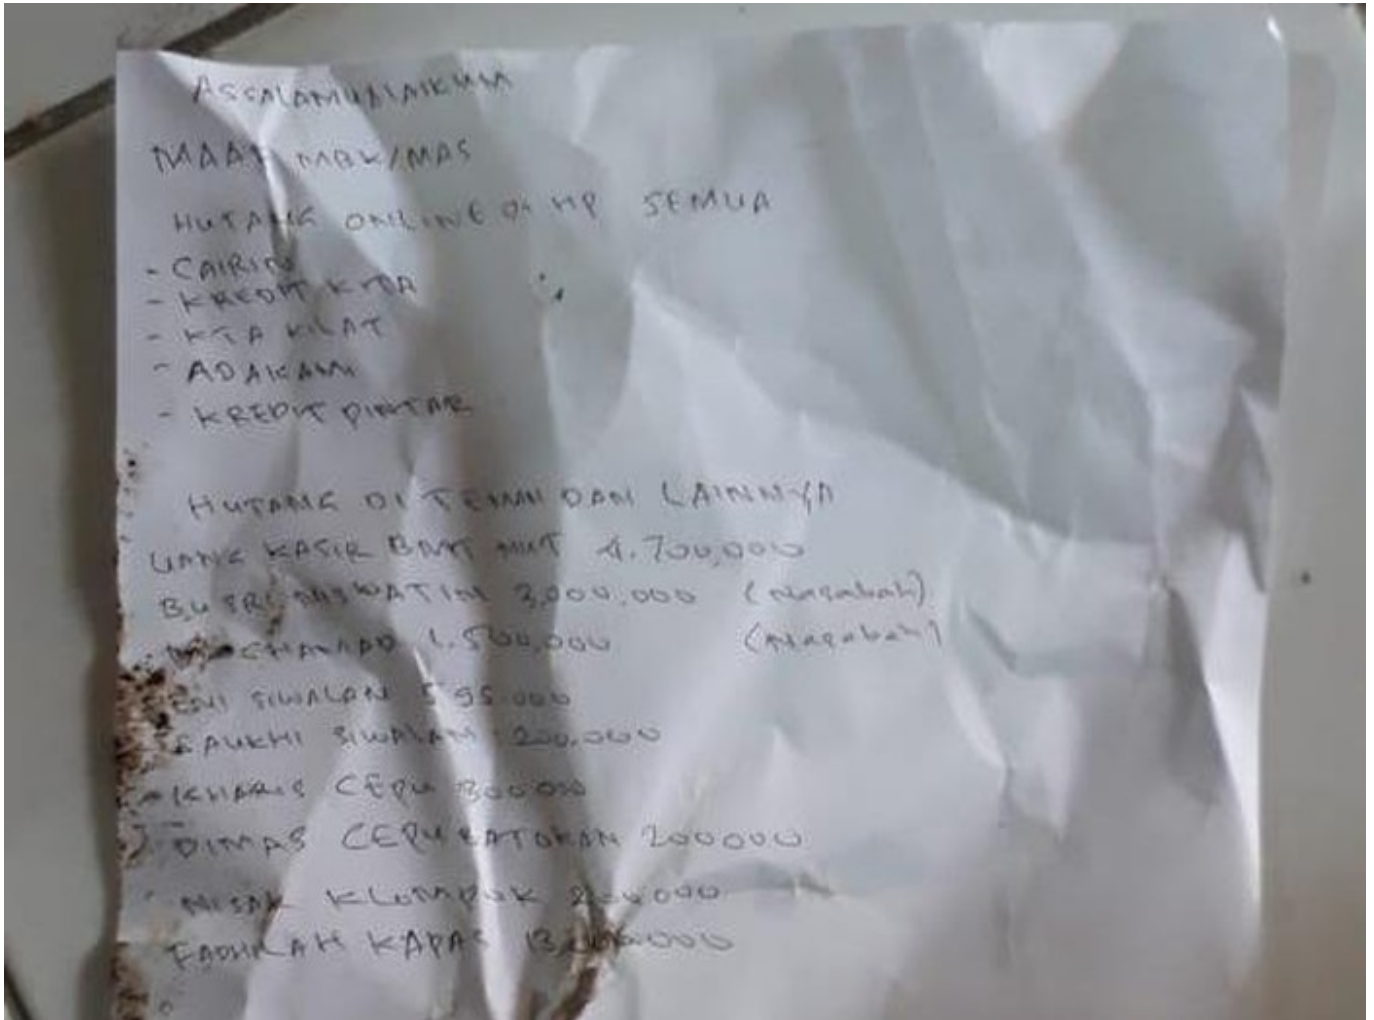 ASSALAMUALAIKUM
MAAF MBK/MAS
HUTANG ONLINE DI HP SEMUA
- CAIRIN
- KREDIT KITA
- KTA KILAT
- ADAKAMI
- KREDIT PINTAR
HUTANG DI TEMAN DAN LAINNYA
UANG KASIR 4.700,000
BU SRI 3,000,000 (Nasabah)
1.500,000 (Nasabah)
ENI SIWALAN 595.000
SIWALAN 200.000
KHARIS CEPU 300000
DIMAS CEPU 200000
KLOMPOK 200.000
KAPAS